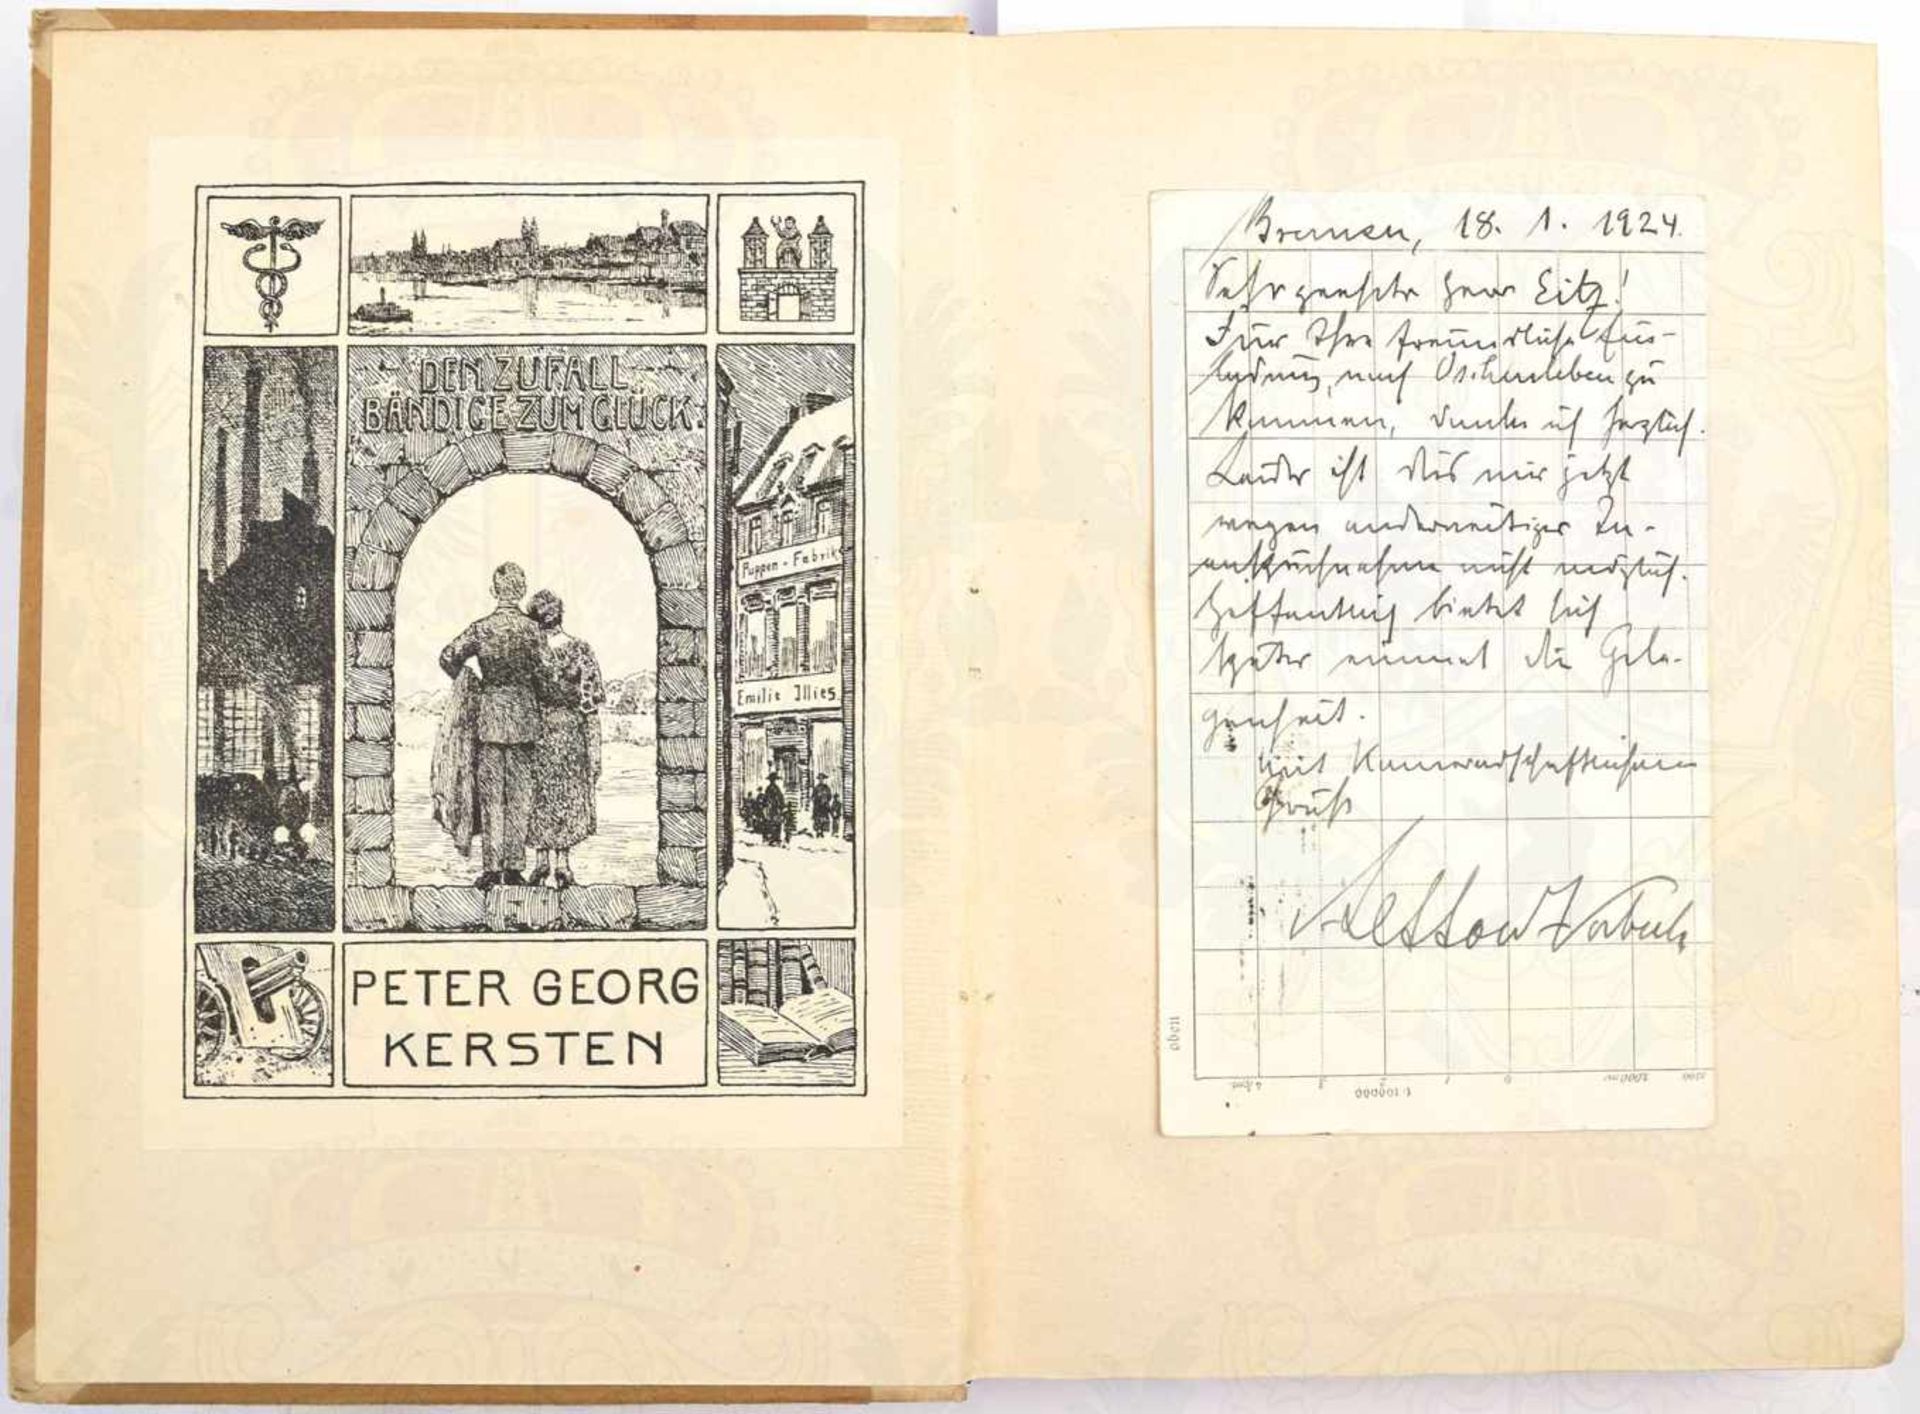 DEN ZUFALL
BÄNDIGE ZUM GLÜCK.
Puppen-Fabrik
Emilie Illies
PETER GEORG
KERSTEN
Bremen, 18. 1. 1924.
Sehr geehrter Herr Eitz!
Für Ihre freundliche Ein-
ladung, nach Oschersleben zu
kommen, danke ich herzlich.
Leider ist dies mir jetzt
wegen anderweitiger In-
anspruchnahme nicht möglich.
Hoffentlich bietet sich
später einmal die Gele-
genheit.
Mit Kameradschaftlichem
Gruß
v. Lettow-Vorbeck
oben
1:100000